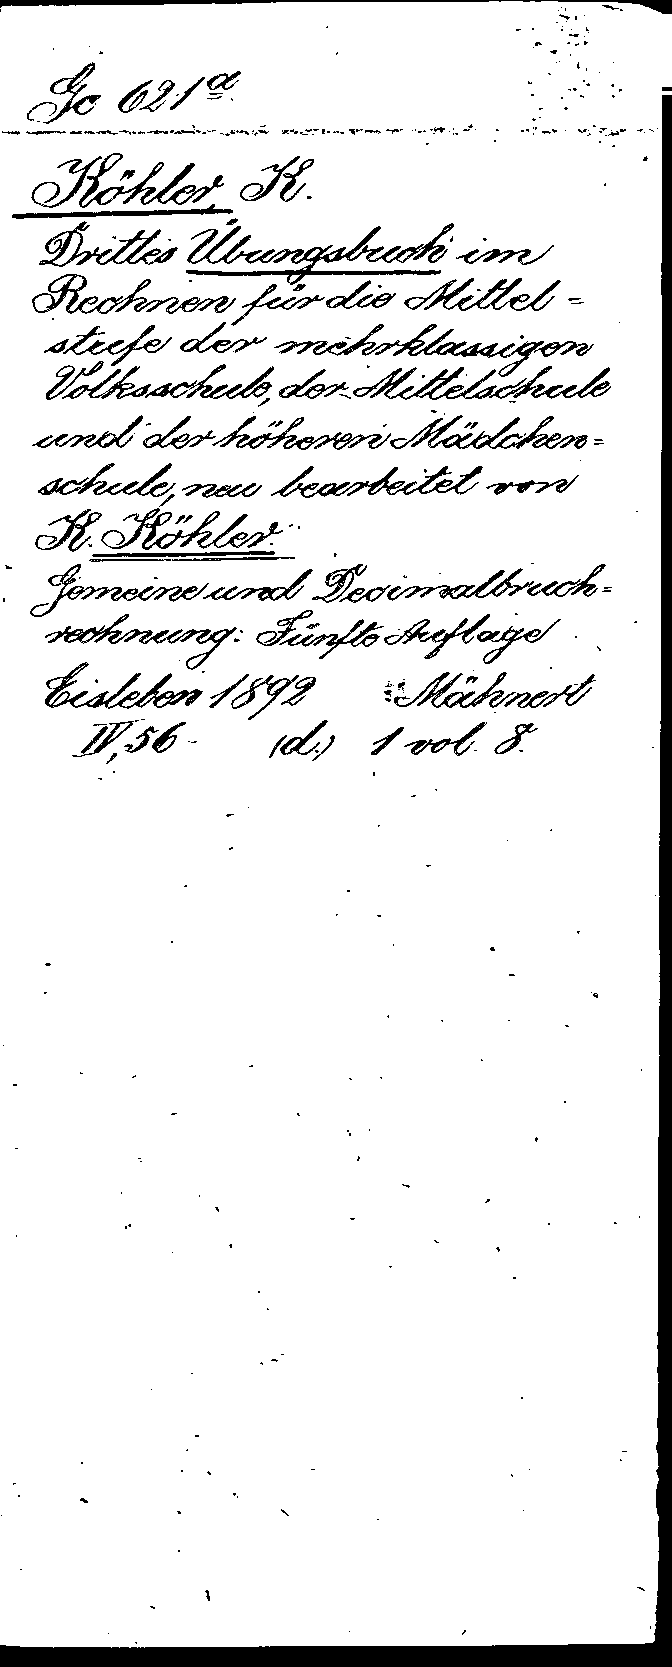 Gc 621a
Köhler, K.
Drittes Übungsbuch im
Rechnen für die Mittel=
stufe der mehrklassigen
Volksschule, der Mittelschule
und der höheren Mädchen=
schule, neu bearbeitet von
K. Köhler.
Gemeine und Decimalbruch=
rechnung. Fünfte Auflage
Eisleben 1892 Mähnert
IV, 56 (d.) 1 vol. 8.